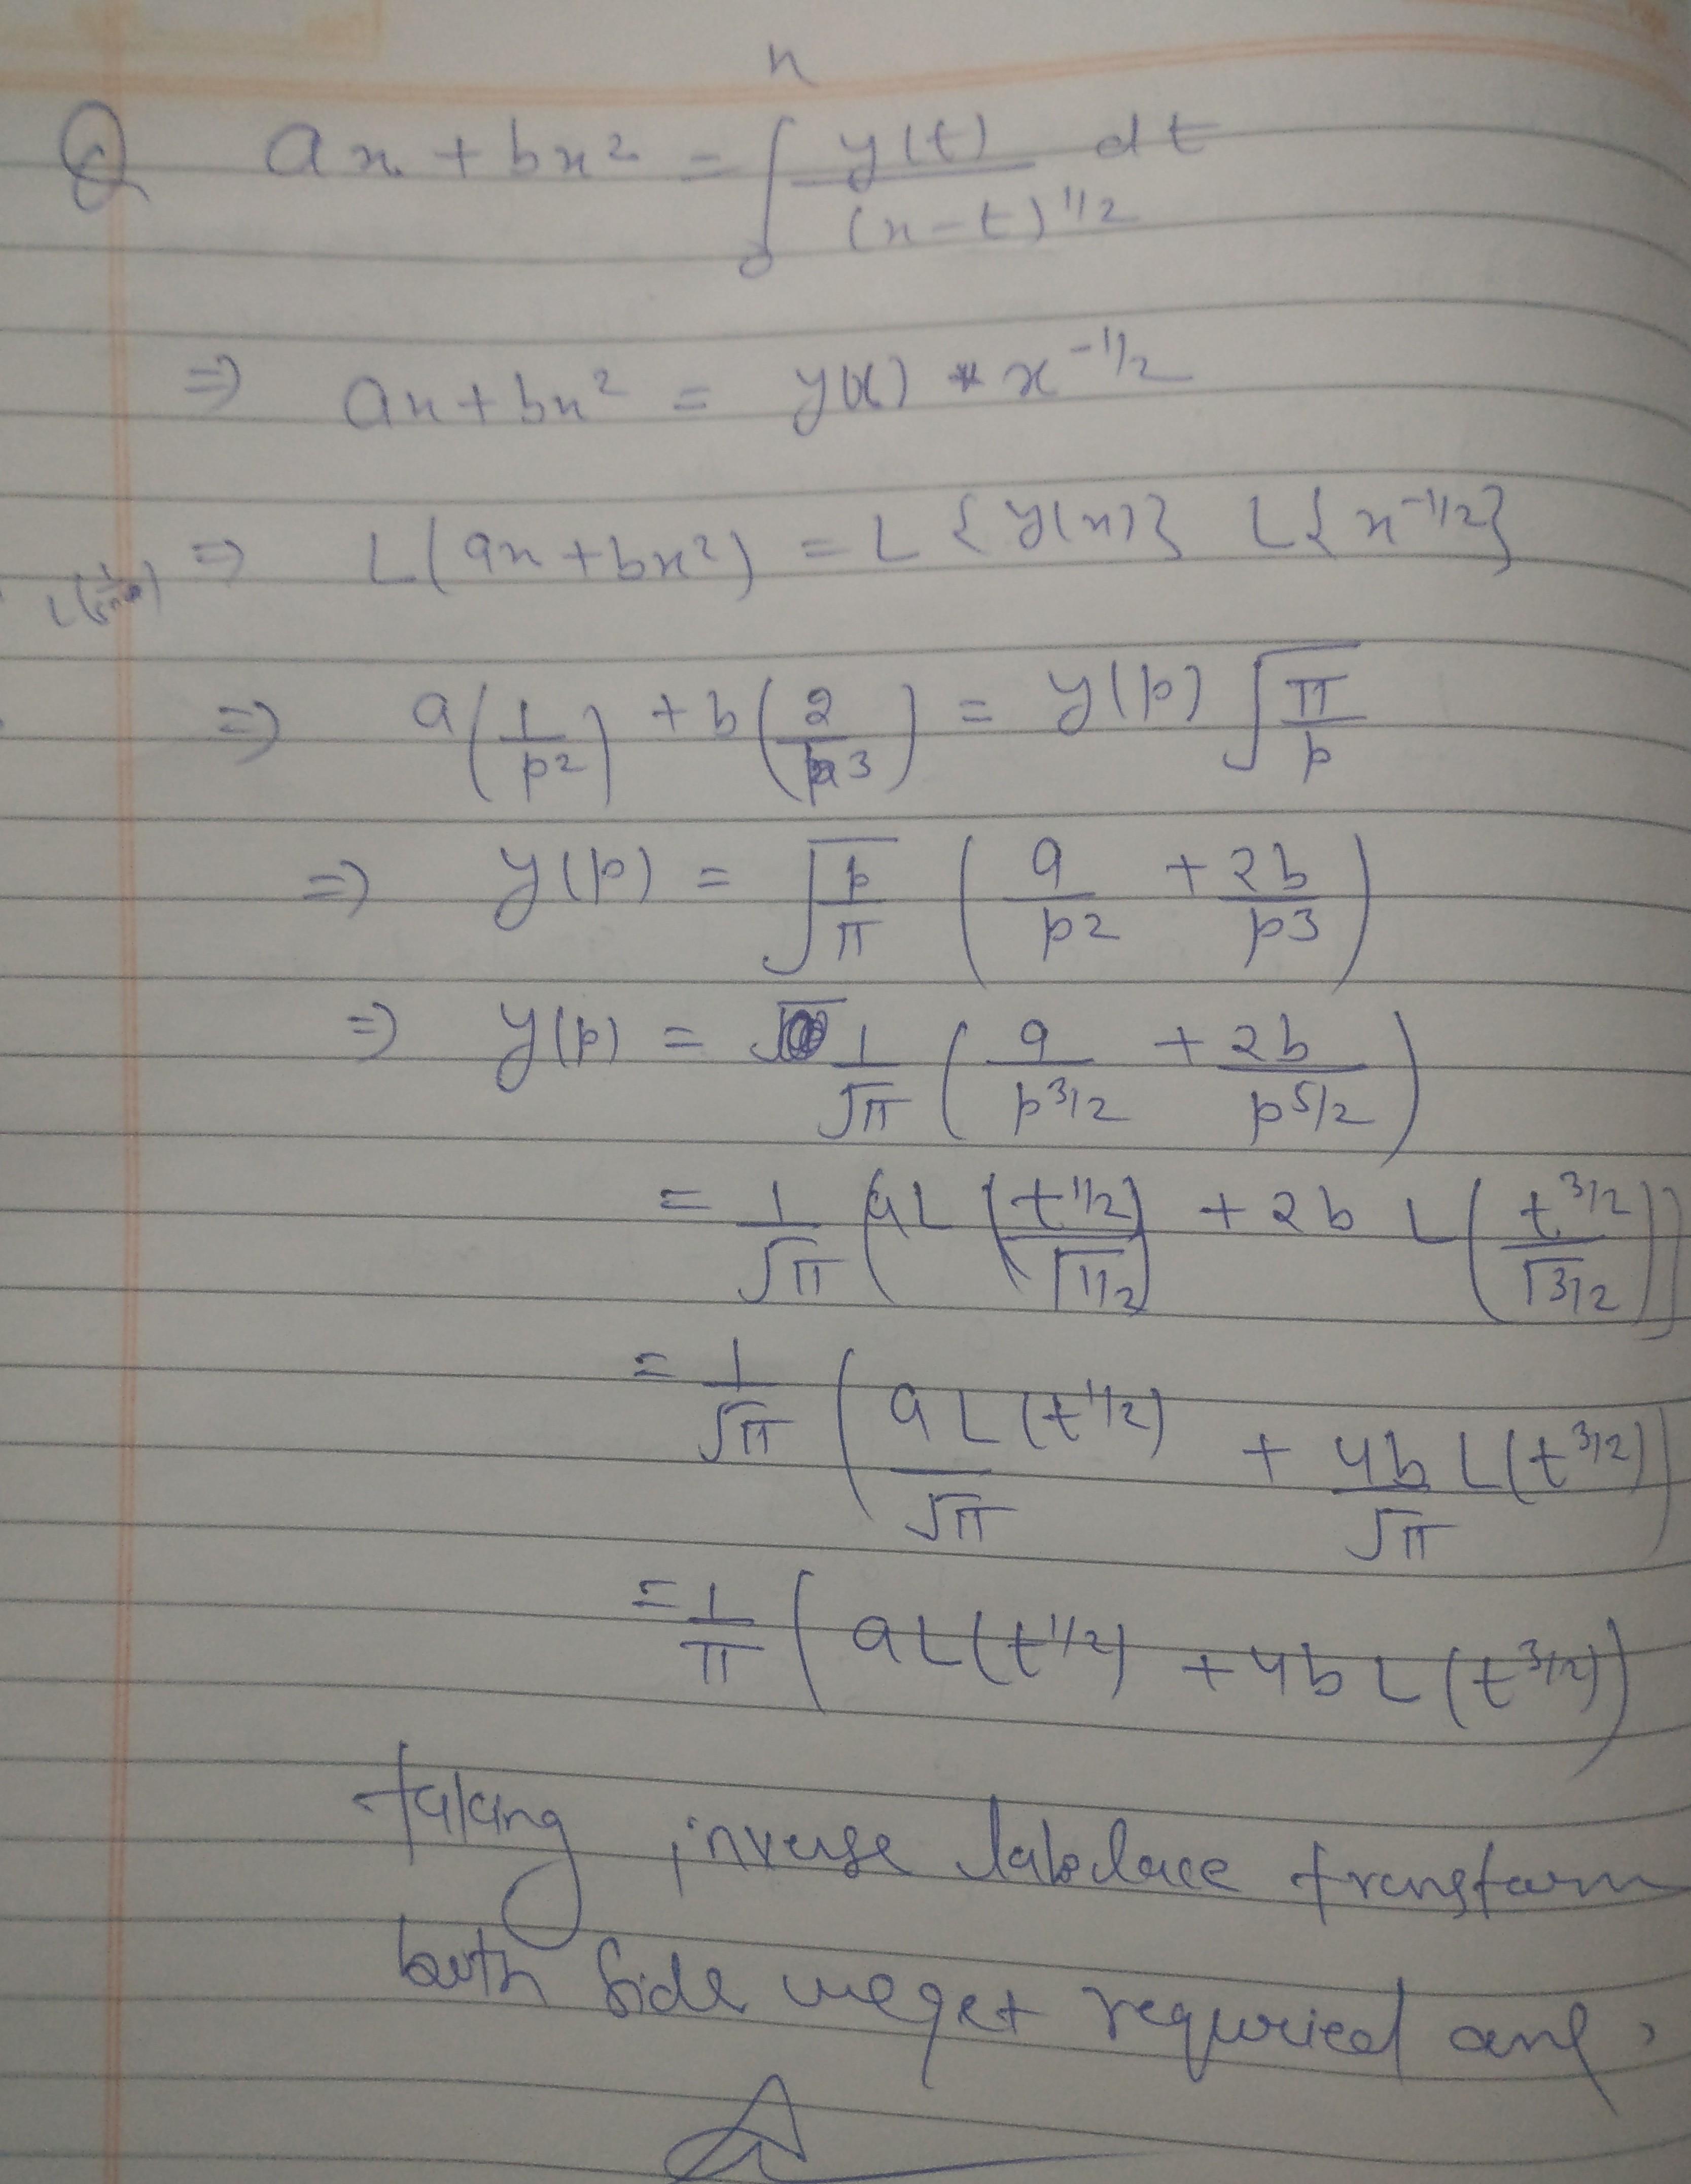 Q ax + bx² = ∫₀ˣ y(t)/(x-t)^1/2 dt
=> ax + bx² = y(x) * x^-1/2
=> L(ax + bx²) = L{y(x)} L{x^-1/2}
=> a(1/p²) + b(2/p³) = y(p) √(π/p)
=> y(p) = √(p/π) (a/p² + 2b/p³)
=> y(p) = 1/√π (a/p^3/2 + 2b/p^5/2)
= 1/√π (aL(t^1/2/Γ1/2) + 2b L(t^3/2/Γ3/2))
= 1/√π (a/√π L(t^1/2) + 4b/√π L(t^3/2))
= 1/π (aL(t^1/2) + 4b L(t^3/2))
taking inverse laplace transform
both side we get required ans.